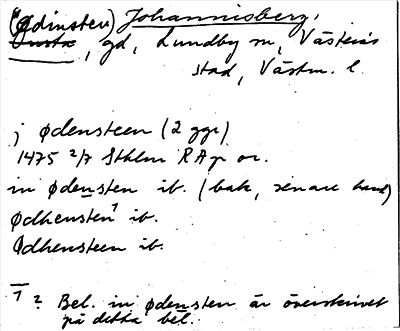 (Ødinsten) Johannisberg,
, gd, Lundby sn, Västerås
stad, Västm. l.
j ødensteen (2 ggr)
1475 2/7 Sthlm RAp or.
in ødensten ib. (bak, senare hand)
Ødhensten 1 ib.
Ødhensteen ib.
1 ? Bel. in ødensten är överskrivet
på detta bel.